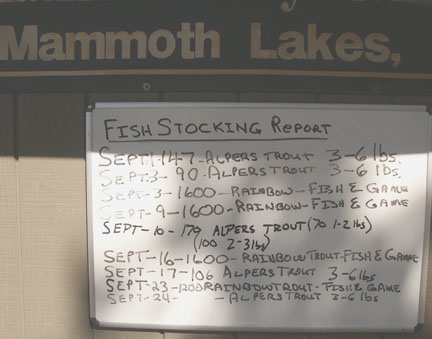 Mammoth Lakes,
FISH STOCKING REPORT
SEPT 1-147-ALPERS TROUT 3-6 lbs.
SEPT-3-90-ALPERS TROUT 3-6 lbs.
SEPT-3-1600-RAINBOW-FISH & GAME
SEPT-9-1600-RAINBOW-FISH & GAME
SEPT-10-170 ALPERS TROUT (70 1-2 lbs)
(100 2-3 lbs)
SEPT-16-1600-RAINBOW TROUT-FISH & GAME
SEPT-17-106 ALPERS TROUT 3-6 lbs
SEPT-23-1200 RAINBOW TROUT-FISH & GAME
SEPT-24- -ALPERS TROUT 3-6 lbs